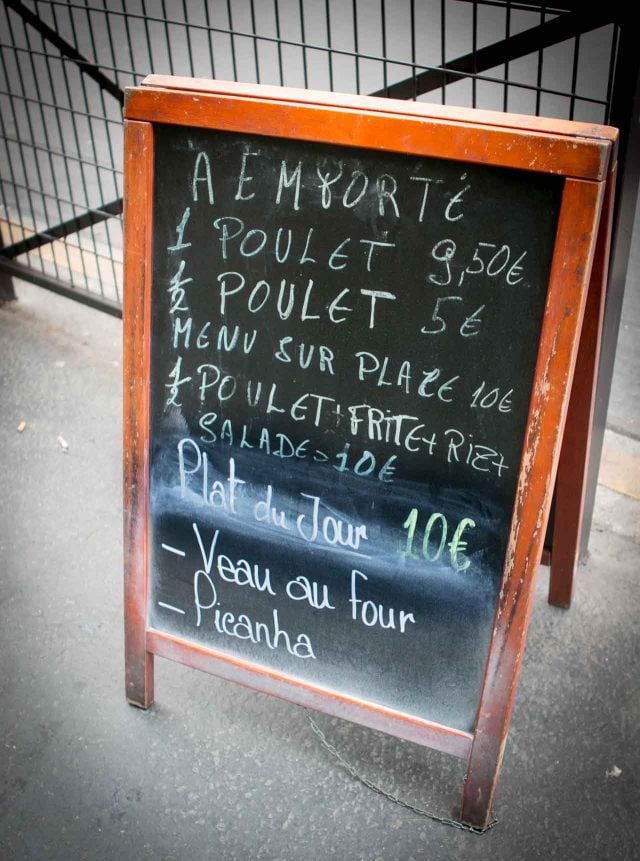 A EMPORTÉ
1 POULET 9,50€
1/2 POULET 5€
MENU SUR PLACE 10€
1/2 POULET+FRITE+RIZ+
SALADE=10€
Plat du Jour 10€
– Veau au four
– Picanha